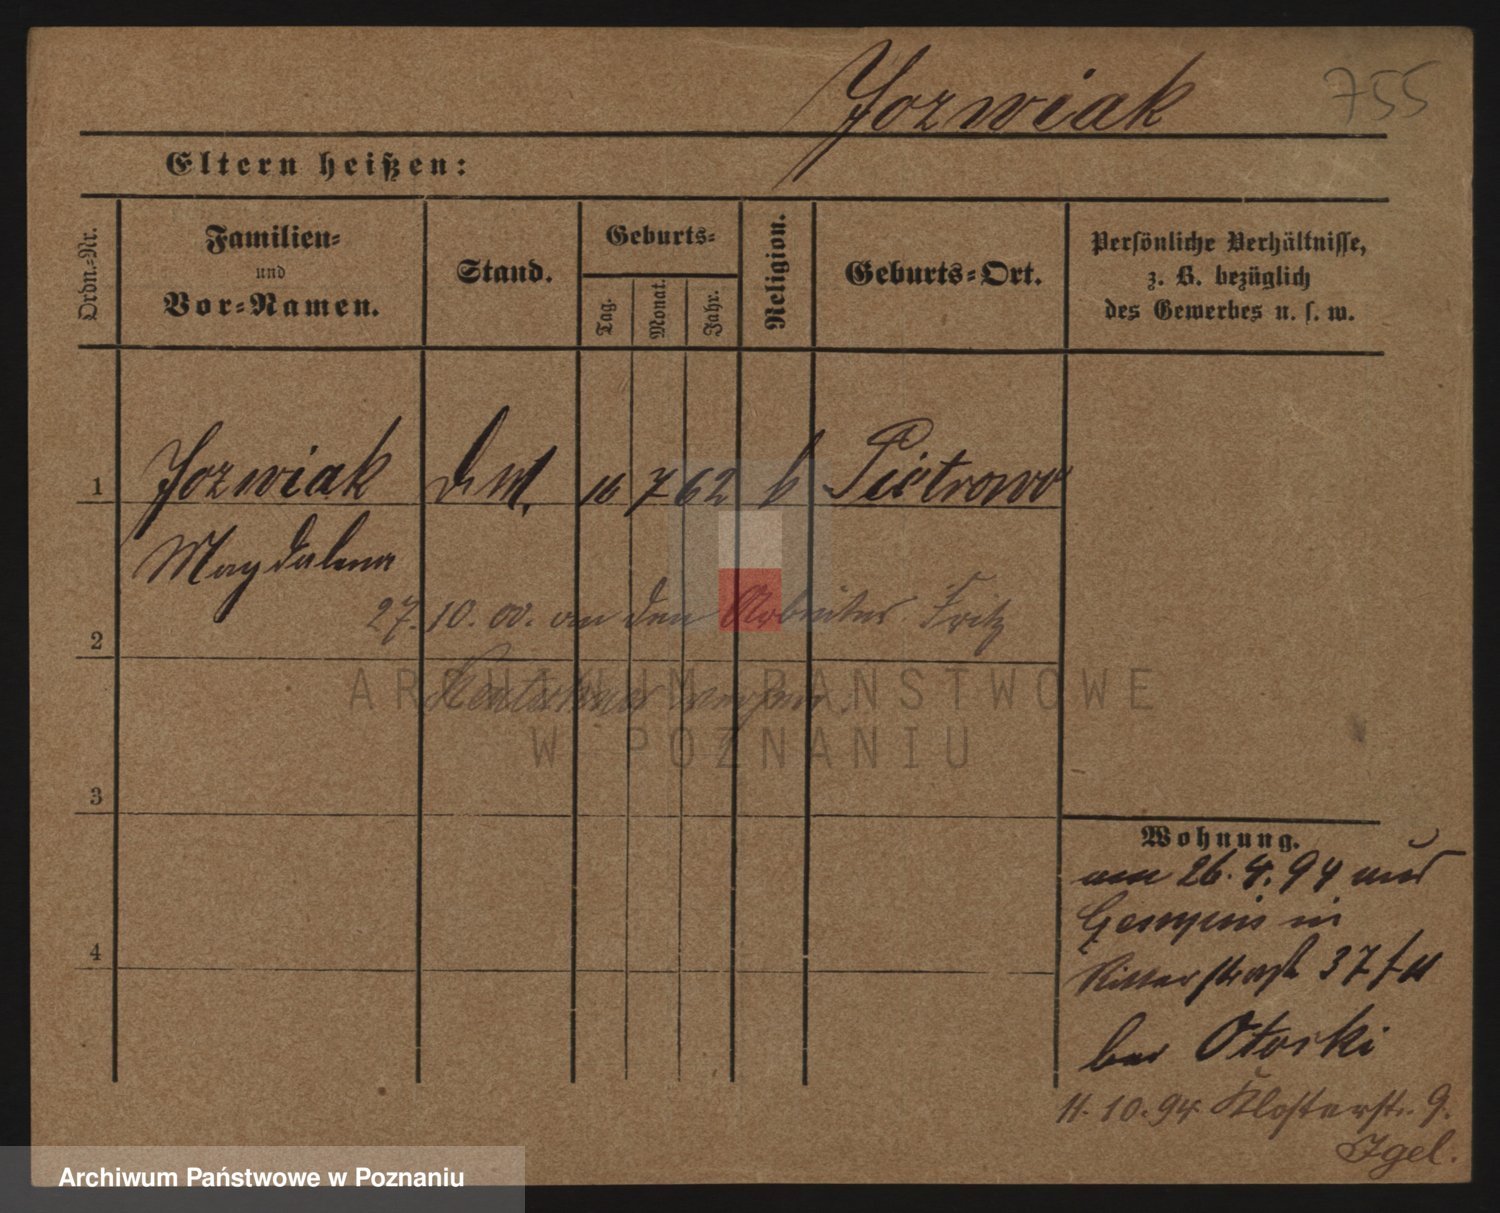 Jozwiak 755
Eltern heißen:
Ordn.-Nr.
Familien-
und
Vor-Namen.
Stand.
Geburts-
Tag.
Monat.
Jahr.
Religion.
Geburts-Ort.
Persönliche Verhältnisse,
z. B. bezüglich
des Gewerbes u. s. w.
1 Jozwiak 16 7 62 Pietrowo
Magdalena
27.10.00. an den Arbeiter Fritz
2
ARCHIWUM PAŃSTWOWE
W POZNANIU
3
Wohnung.
am 26.4.94 aus
in
4
Ritterstraße 37
bei Otorki
11.10.94. Klosterstr. 9.
Igel.
Archiwum Państwowe w Poznaniu